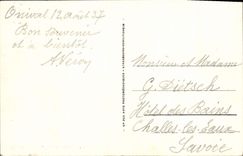 Onival 12 août 37
Bon souvenir
et à bientôt.
Monsieur et Madame
G. Dietsch
Hôtel des Bains
Challes-les-Eaux
Savoie